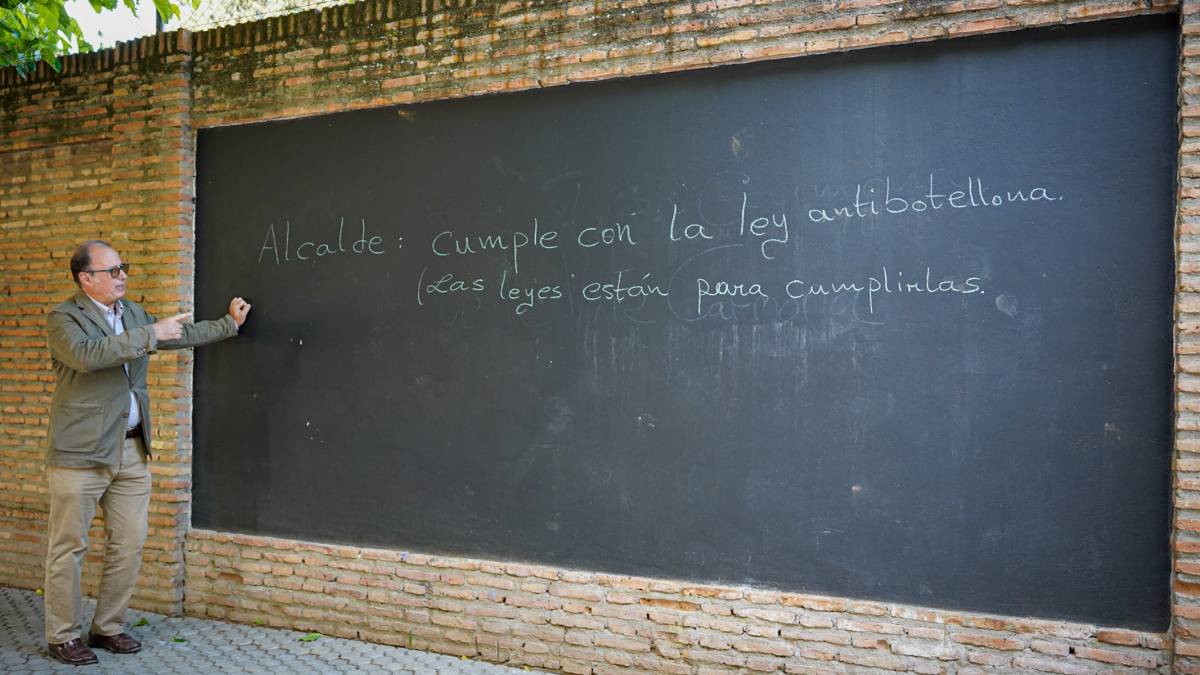 Alcalde: cumple con la ley antibotellona.
(Las leyes están para cumplirlas.